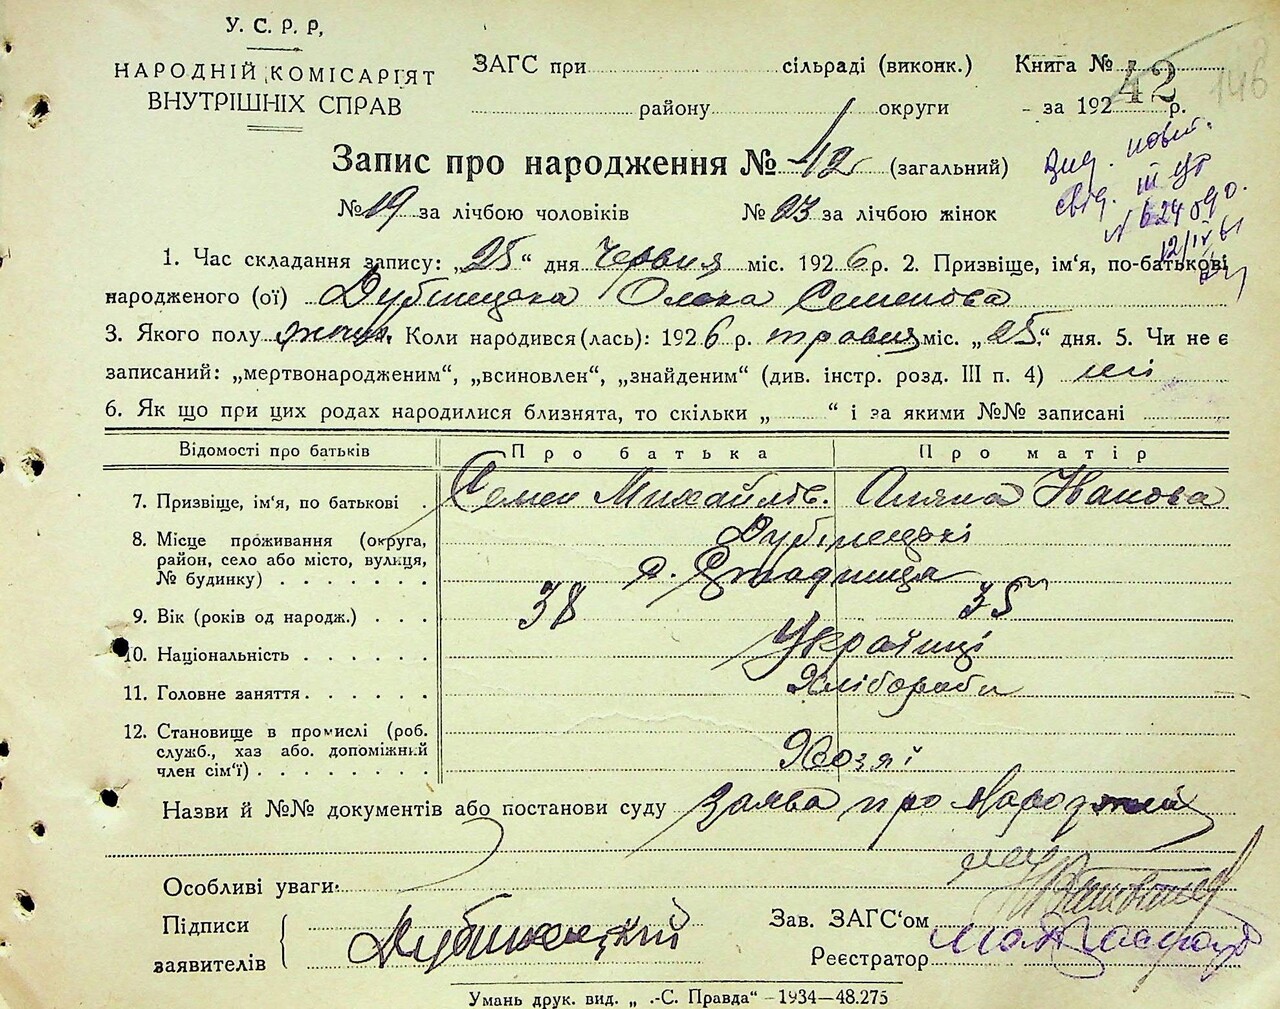 У. С. Р. Р.
НАРОДНІЙ КОМІСАРІЯТ
ВНУТРІШНІХ СПРАВ
ЗАГС при сільраді (виконк.) Книга № 42 146
району округи за 192 р.
Запис про народження № 42 (загальний)
№ 19 за лічбою чоловіків № 23 за лічбою жінок
Вид. повт.
свід. III УР
№ 624090.
12/IV 61
1. Час складання запису: „25“ дня Червня міс. 1926 р. 2. Призвіще, ім'я, по-батькові
народженого (ої) Дубінецька Олена Семенова
3. Якого полу жіноч. Коли народився (лась): 1926 р. травня міс. „25“ дня. 5. Чи не є
записаний: „мертвонародженим“, „всиновлен“, „знайденим“ (див. інстр. розд. III п. 4) ні
6. Як що при цих родах народилися близнята, то скільки „ “ і за якими №№ записані
Відомості про батьків Про батька Про матір
7. Призвіще, ім'я, по батькові Семен Михайлів. Оляна Іванова
8. Місце проживання (округа, Дубінецькі
район, село або місто, вулиця,
№ будинку) с.
9. Вік (років од народж.) 38 35
10. Національність Українці
11. Головне заняття Хлібороби
12. Становище в промислі (роб.
служб., хаз або. допоміжний
член сім'ї) Хозяї
Назви й №№ документів або постанови суду Заява про народжен
Особливі уваги:
Підписи
заявителів Дубінецкий
Зав. ЗАГС'ом
Реєстратор
Умань друк. вид. „ .-С. Правда“ -1934—48.275